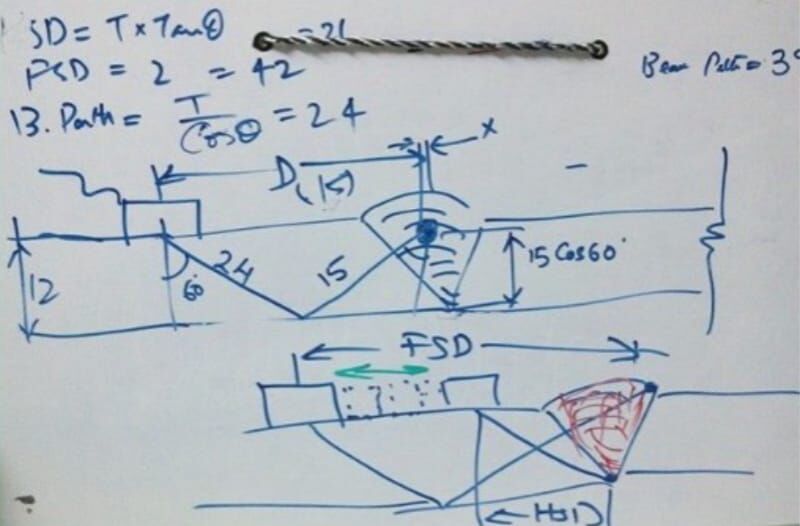 SD = T x Tan θ = 21
FSD = 2 = 42
Beam Path = 3
B. Path = T / Cos θ = 24
x
D
15 Cos 60°
24
15
12
60
FSD
HSD